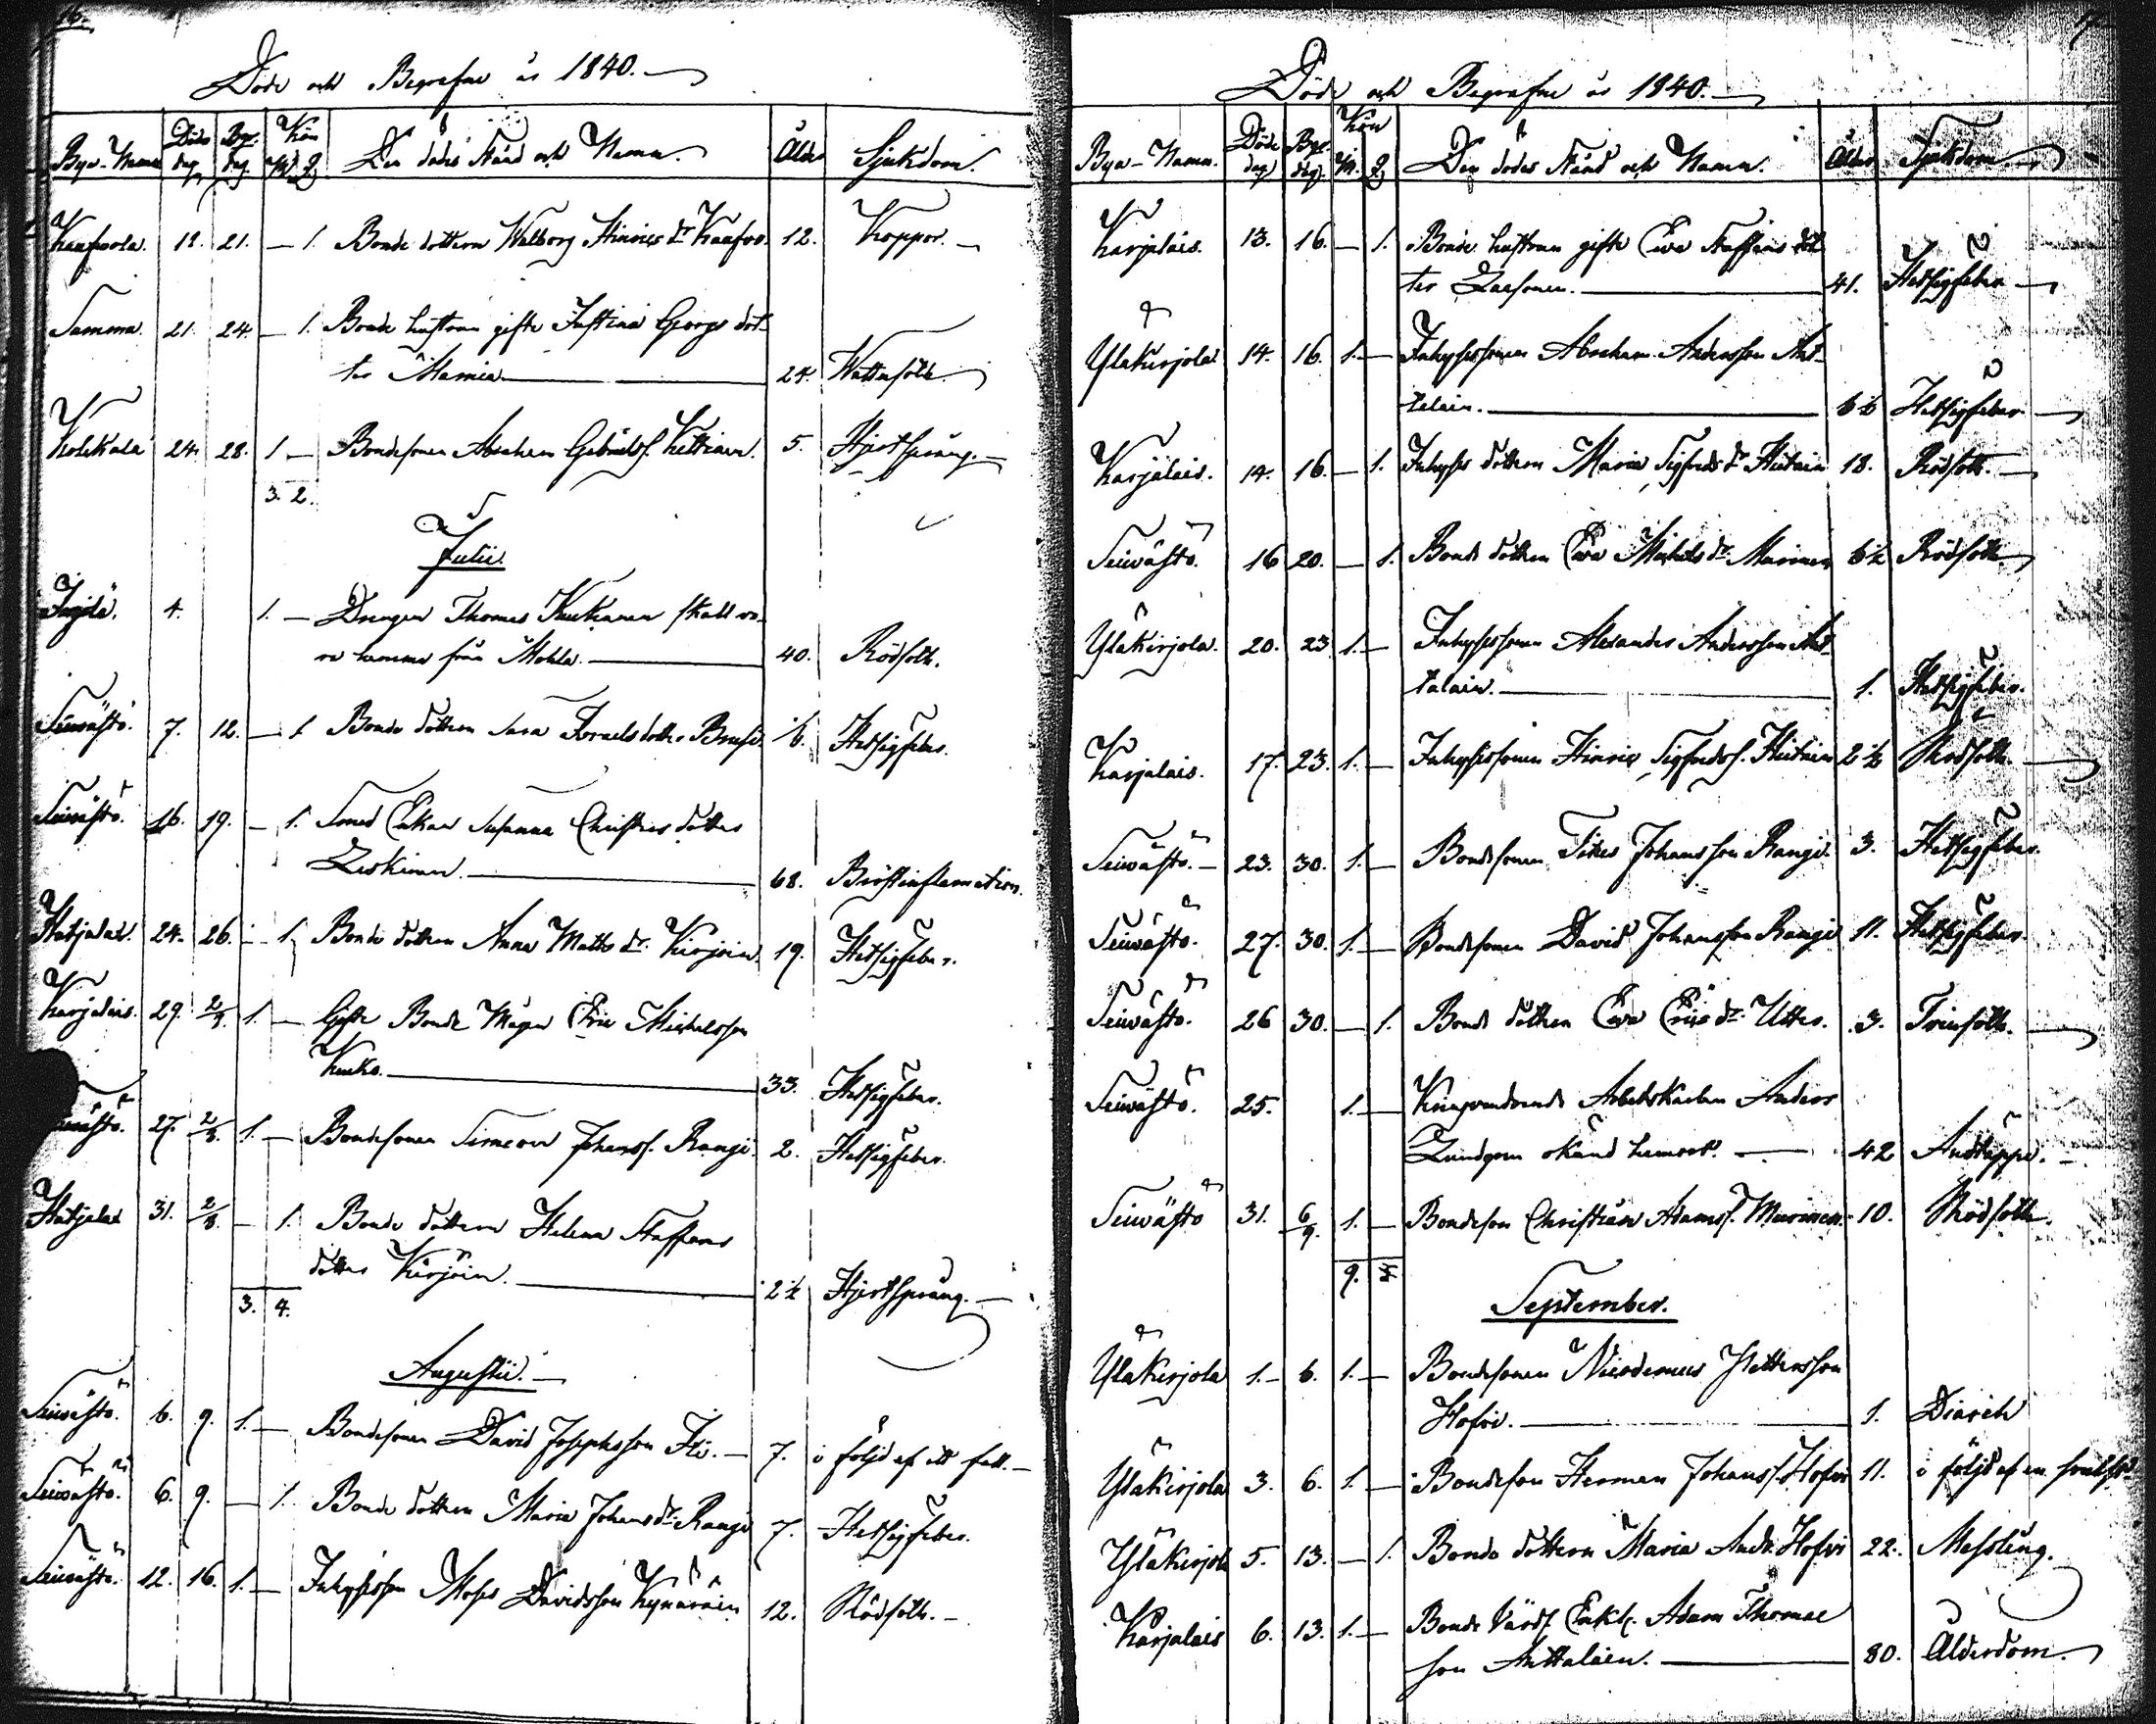 16.
Döde och Begrafne år 1840.
Bya-Namn Döds dag Begr. dag Kön M. Q. Den dödes Stånd och Namn. Ålder Sjukdom.
12. 21. — 1. Bonde dottern Walborg Hinrics dr 12. Koppor.
Samma. 21. 24. — 1. Bonde hustrun gifte Justina Georgs dot-
ter 24. Wattusott.
Kolekala 24. 28. 1 — Bondesonen Abraham 5. Hjertsprång.
3. 2.
Julii.
4. 1. — Drengen Thomas Kuukanen skall va-
ra hemma från Mohla. 40. Rödsoth.
Seiwästö. 7. 12. — 1. Bonde dottern Sara Israels dotter Hetsigfeber.
Seiwästö. 16. 19. — 1. Enkan Susanna Christers dotter
Leskinen. 68. Bröstinflamation.
Hatjalax. 24. 26. — 1. Bonde dottern Anna Matts dr. 19. Hetsigfeber.
Karjalais. 29. 2/8. 1. — Gifte Bonde Mågen Eric Michelsson
Kuko. 33. Hetsigfeber.
27. 2/8. 1. — Bondesonen Simeon Johanss. Rangi. 2. Hetsigfeber.
Hatjalax 31. 2/8. — 1. Bonde dottern Helena Staffans
dotter 2 1/2 Hjertsprång.
3. 4.
Augustii.
Seiwästö. 6. 9. 1. — Bondesonen David Josephsson 7. i följd af ett fall.
Seiwästö. 6. 9. — 1. Bonde dottern Maria Johans dr. Rangi 7. Hetsigfeber.
Seiwästö. 12. 16. 1. — Inhysesson Moses Davidsson Kynäräin 12. Rödsoth.
17.
Döde och Begrafne år 1840.
Bya-Namn. Döds dag Begr. dag. Kön M. Q. Den dödes Stånd och Namn. Ålder Sjukdom
Karjalais. 13. 16. — 1. Bonde hustrun gifte Ewa Staffans dot
ter 41. Hetsigfeber
Yläkirjola 14. 16. 1. — Inhysessonen Abraham Andersson Ant-
talain. 6 1/2 Hetsigfeber
Karjalais. 14. 16. — 1. Inhyses dottern Maria Sigfreds dr. 18. Rödsoth.
Seiwästö. 16 20. — 1. Bonde dottern Ewa Michels dr. Murinen 6 1/2 Rödsoth.
Yläkirjola. 20. 23 1. — Inhysessonen Alexander Andersson Ant-
talain. 1. Hetsigfeber.
Karjalais. 17. 23. 1. — Inhysessonen Hinric Sigfredss. 2 1/2 Rödsoth.
Seiwästö. — 23. 30. 1. — Bondesonen Johansson Rangi. 3. Hetsigfeber.
Seiwästö. 27. 30. 1. — Bondesonen David Johansson Rangi 11. Hetsigfeber.
Seiwästö. 26 30. — 1. Bonde dottern Ewa Erics dr. Utter. 3. Trinsoth.
Seiwästö. 25. 1. — Kringvandrande Arbetskarlen Anders
Lundgren okänd hemort. 42 Andtäppa.
Seiwästö 31. 6/9. 1. — Bondeson Christian Adamss. Murinen. 10. Rödsoth.
9.
September.
Yläkirjola 1. 6. 1. — Bondesonen Nicodemus Pettersson
Hofvi. 1. Diareh
Yläkirjola 3. 6. 1. — Bondeson Herman Johanss. Hofvi 11. i följd af en
Yläkirjola 5. 13. — 1. Bonde dottern Maria Hofvi 22. Messling.
Karjalais 6. 13. 1. — Bonde Enkl. Adam Thomas
son Anttalain. 80. Ålderdom.